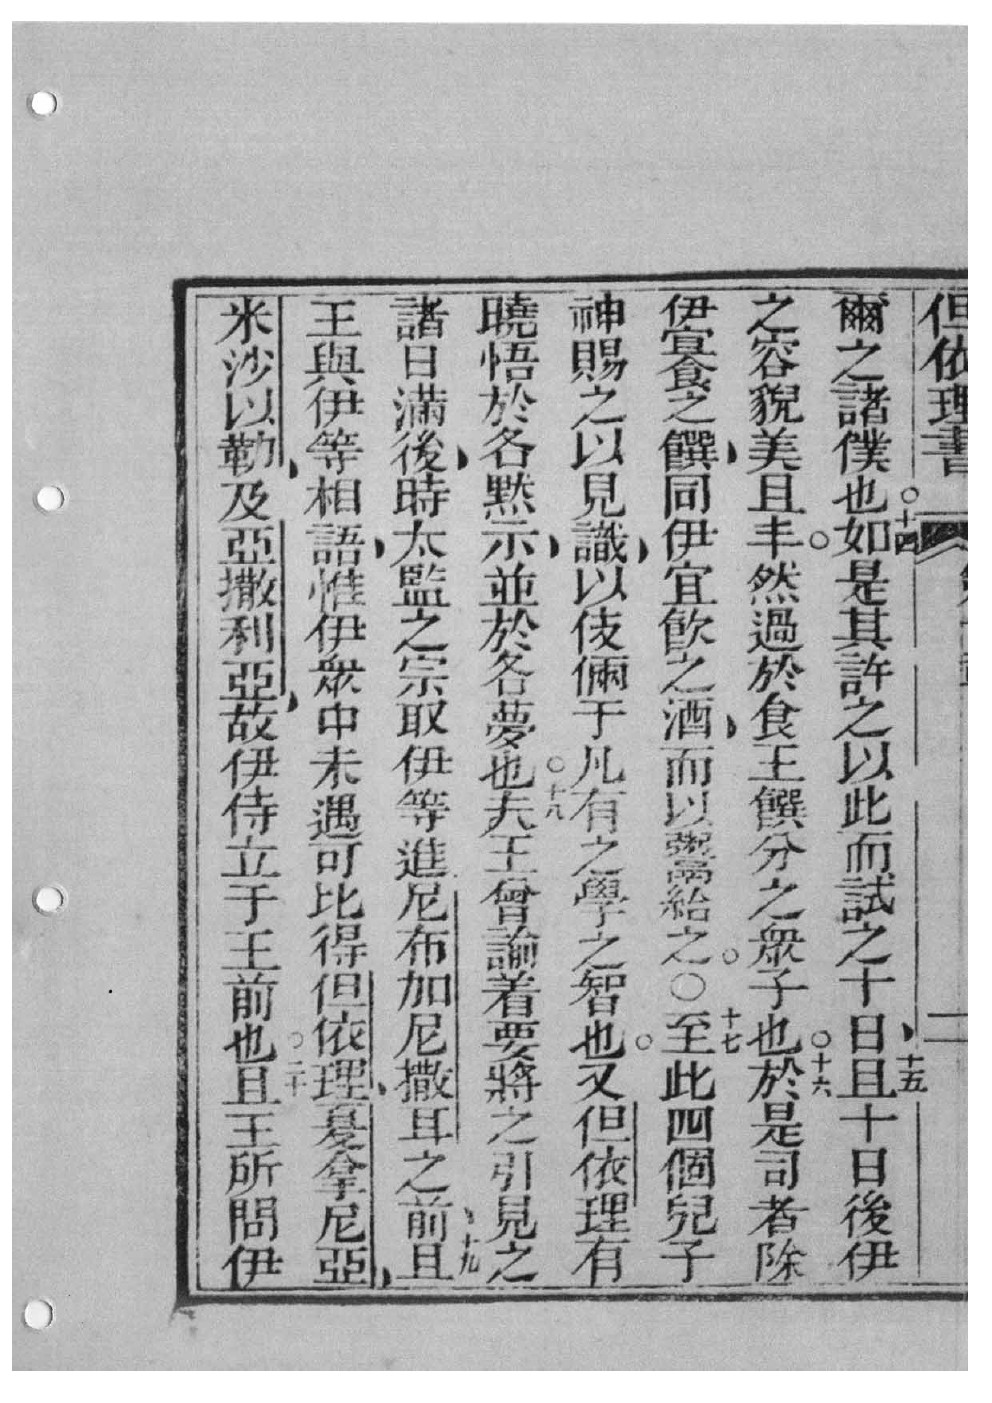 但依理書
爾之諸僕也○十四如是其許之以此而試之十日十五且十日後伊
之容貌美且丰○然過於食王饌分之衆子也○十六於是司者除
伊宜食之饌同伊宜飲之酒而以粥給之○○十七至此四個兒子
神賜之以見識以伎倆于凡有之學之智也○又但依理有
曉悟於各黙示並於各夢也○十八夫王曾諭着要將之引見之
諸日滿後時太監之宗取伊等進尼布加尼撒耳之前十九且
王與伊等相語惟伊衆中未遇可比得但依理戞拿尼亞
米沙以勒及亞撒利亞故伊侍立于王前也○二十且王所問伊